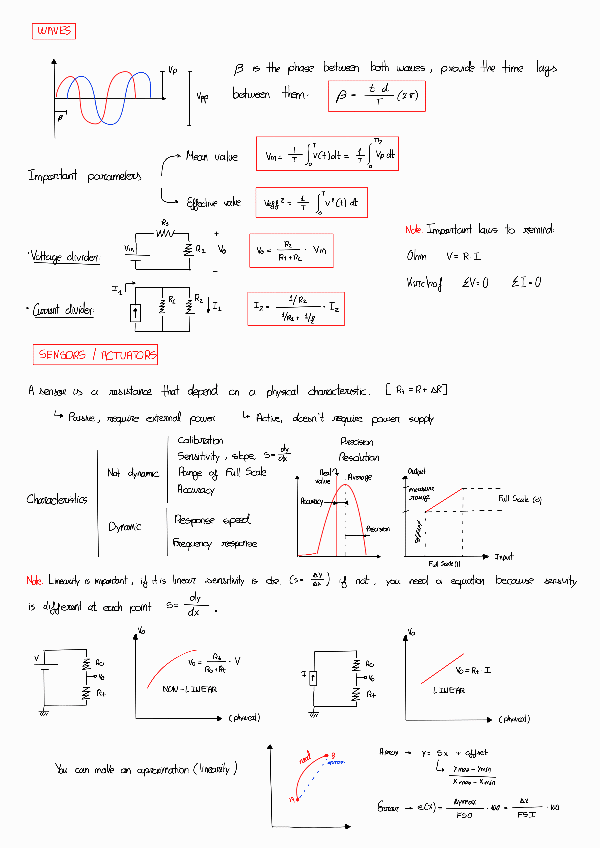 WAVES
Vp
Vpp
β
β is the phase between both waves, provide the time lays
between them. β = t d / T (2π)
Important parameters
Mean value Vm = 1/T ∫₀ᵀ V(t)dt = 1/T ∫ Vp dt
Effective value Veff² = 1/T ∫₀ᵀ V²(t) dt
Note. Important laws to remind:
· Voltage divider: Vin R1 R2 + V0 − V0 = R2 / R1+R2 · Vin
Ohm V = R · I
Kirchof ΣV=0 ΣI=0
· Current divider: R1 R2
SENSORS / ACTUATORS
A sensor is a resistance that depend on a physical characteristic. [ Rt = R + ΔR ]
↳ Passive, require external power ↳ Active, doesn't require power supply
Characteristics
Not dynamic
Calibration
Sensitivity, slope, S= dy/dx
Range of Full Scale
Accuracy
Dynamic
Response speed
Frequency response
Precision
Resolution
Real value
Average
Accuracy
Precision
Output
measure range
Full Scale (O)
offset
Input
Full Scale (I)
Note. Linearity is important, if it is linear sensitivity is cte. (S= ΔY/ΔX) if not, you need a equation because sensivity
is different at each point S= dy/dx .
V R0 V0 Rt
V0
V0 = Rt / R0+Rt · V
NON-LINEAR
(physical)
I R0 V0 Rt
V0
V0 = Rt · I
LINEAR
(physical)
You can make an aproximation (linearity)
real
A
B
Aprox → y = Sx + offset
↳ Ymax - Ymin / Xmax - Xmin
Error → e(x) = Δymax / FSO · 100 = Δx / FSI · 100